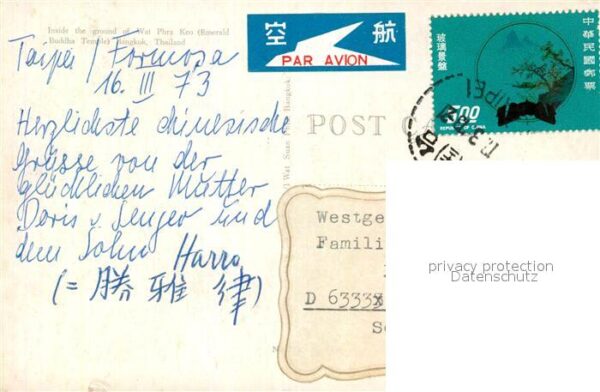 Inside the ground of Wat Phra Keo (Emerald
Buddha Temple) Bangkok, Thailand
Taipei / Formosa
16. III 73
Herzlichste chinesische
Grüsse von der
glücklichen Mutter
Doris v. Senger und
dem Sohn Harro
(= 勝雅律)
航空
PAR AVION
中華民國郵票
玻璃景盤
3.00
REPUBLIC OF CHINA
POST
Westge
Famili
D 6333
privacy protection
Datenschutz